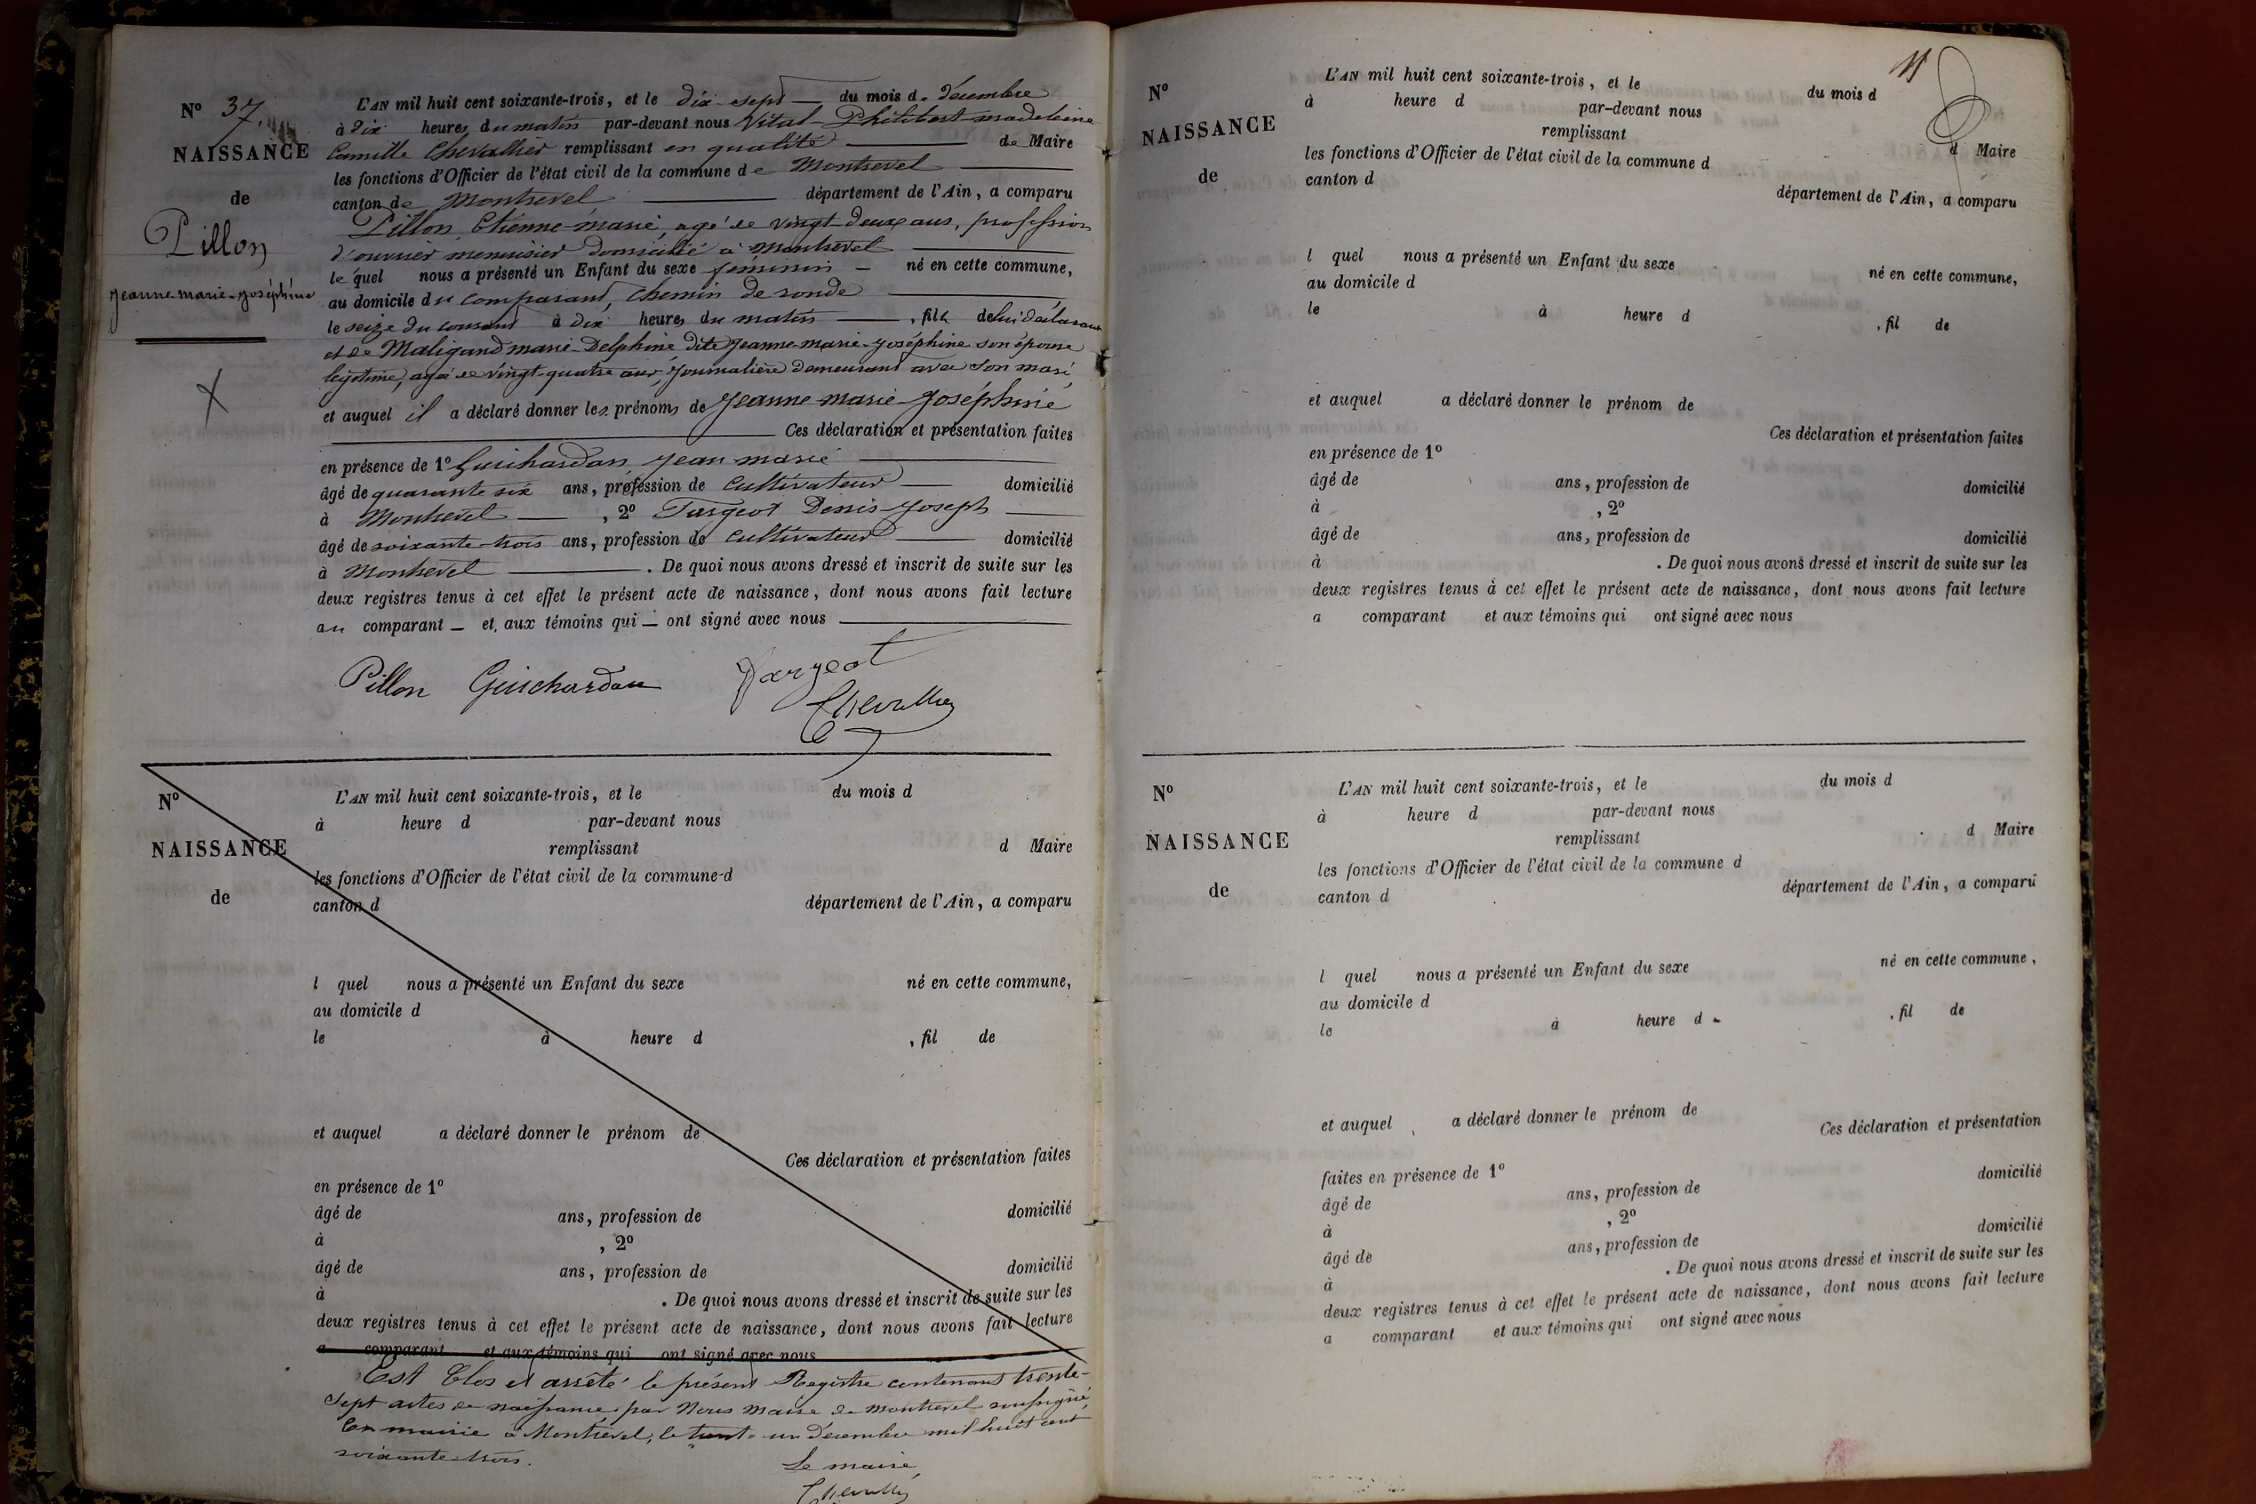 N° 37.
NAISSANCE
de
Pillon
Jeanne-marie-joséphine
L'AN mil huit cent soixante-trois, et le dix-sept du mois de décembre
à dix heures du matin par-devant nous Vital-Philibert-madeleine
Camille Chevallier remplissant en qualité de Maire
les fonctions d'Officier de l'état civil de la commune de Montrevel
canton de Montrevel département de l'Ain, a comparu
Pillon Etienne-marie, agé de vingt-deux ans, profession
d'ouvrier menuisier domicilié à Montrevel
lequel nous a présenté un Enfant du sexe féminin né en cette commune,
au domicile du comparant, chemin de ronde
le seize du courant à dix heures du matin, fille de lui déclarant
et de Maligand marie-Delphine dite Jeanne-marie-joséphine son épouse
légitime, agée de vingt-quatre ans, journalière demeurant avec son mari,
et auquel il a déclaré donner les prénoms de Jeanne-marie-Joséphine
Ces déclaration et présentation faites
en présence de 1° Guichardan Jean-marie
âgé de quarante six ans, profession de cultivateur domicilié
à Montrevel, 2° Turgeot Denis-Joseph
âgé de soixante-trois ans, profession de cultivateur domicilié
à Montrevel. De quoi nous avons dressé et inscrit de suite sur les
deux registres tenus à cet effet le présent acte de naissance, dont nous avons fait lecture
au comparant et aux témoins qui ont signé avec nous
Pillon Guichardan
Chevallier
N°
NAISSANCE
de
L'AN mil huit cent soixante-trois, et le du mois d
à heure d par-devant nous
remplissant d Maire
les fonctions d'Officier de l'état civil de la commune d
canton d département de l'Ain, a comparu
l quel nous a présenté un Enfant du sexe né en cette commune,
au domicile d
le à heure d , fil de
et auquel a déclaré donner le prénom de
Ces déclaration et présentation faites
en présence de 1°
âgé de ans, profession de domicilié
à , 2°
âgé de ans, profession de domicilié
à . De quoi nous avons dressé et inscrit de suite sur les
deux registres tenus à cet effet le présent acte de naissance, dont nous avons fait lecture
a comparant et aux témoins qui ont signé avec nous
Est Clos et arrêté le présent Registre contenant trente-
sept actes de naissance par Nous Maire de Montrevel soussigné,
En mairie à Montrevel, le trente-un décembre mil huit cent
soixante-trois.
Le maire,
Chevallier
11
N°
NAISSANCE
de
L'AN mil huit cent soixante-trois, et le du mois d
à heure d par-devant nous
remplissant d Maire
les fonctions d'Officier de l'état civil de la commune d
canton d département de l'Ain, a comparu
l quel nous a présenté un Enfant du sexe né en cette commune,
au domicile d
le à heure d , fil de
et auquel a déclaré donner le prénom de
Ces déclaration et présentation faites
en présence de 1°
âgé de ans, profession de domicilié
à , 2°
âgé de ans, profession de domicilié
à . De quoi nous avons dressé et inscrit de suite sur les
deux registres tenus à cet effet le présent acte de naissance, dont nous avons fait lecture
a comparant et aux témoins qui ont signé avec nous
N°
NAISSANCE
de
L'AN mil huit cent soixante-trois, et le du mois d
à heure d par-devant nous
remplissant d Maire
les fonctions d'Officier de l'état civil de la commune d
canton d département de l'Ain, a comparu
l quel nous a présenté un Enfant du sexe né en cette commune,
au domicile d
le à heure d , fil de
et auquel a déclaré donner le prénom de
Ces déclaration et présentation
faites en présence de 1°
âgé de ans, profession de domicilié
à , 2°
âgé de ans, profession de domicilié
à . De quoi nous avons dressé et inscrit de suite sur les
deux registres tenus à cet effet le présent acte de naissance, dont nous avons fait lecture
a comparant et aux témoins qui ont signé avec nous